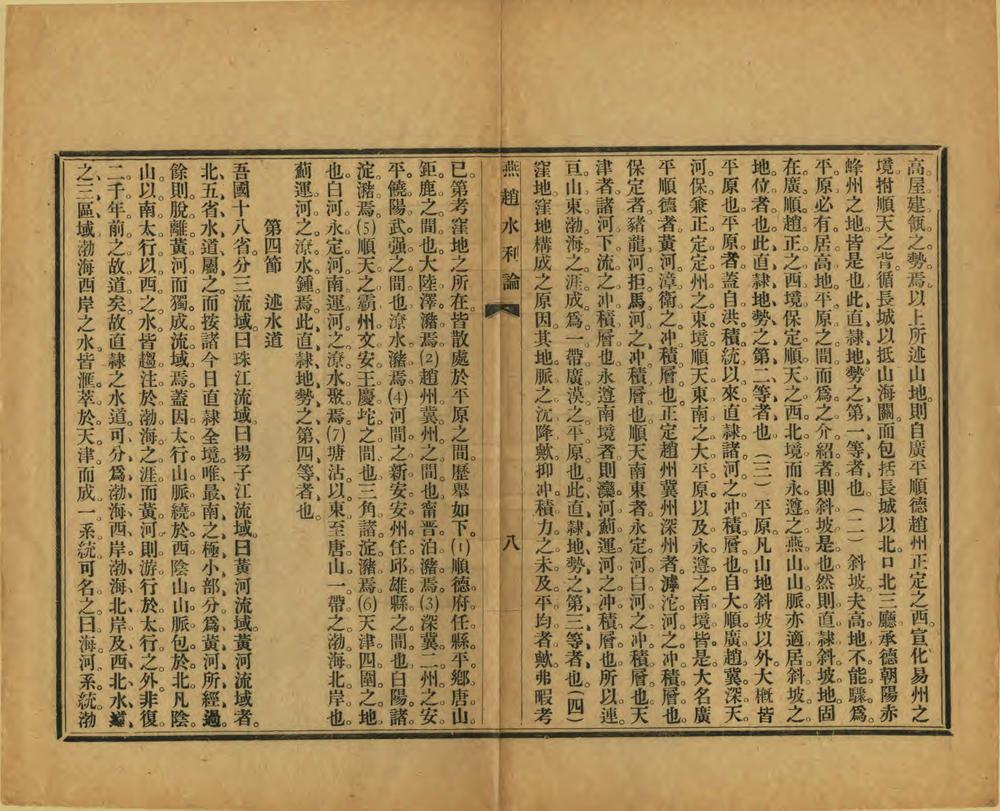 高屋建瓴之勢焉。以上所述山地。則自廣平順德趙州正定之西。宣化易州之
境拊順天之背。循長城以抵山海關。而包括長城以北。口北三廳承德朝陽赤
峰州之地皆是也。此直隸地勢之第一等者也。(二)斜坡。夫高地不能驟爲
平原。必有居高地平原之間而爲之介紹者。則斜坡是也。然則直隸斜坡地。固
在廣順趙正之西境。保定順天之西北境。而永遵之燕山山脈。亦適居斜坡之
地位者也。此直隸地勢之第二等者也。(三)平原。凡山地斜坡以外。大概皆
平原也。平原者。蓋自洪積統以來。直隸諸河之冲積層也。自大順廣趙冀深天
河保。兼正定定州之東境。順天東南之大平原。以及永遵之南境皆是。大名廣
平順德者。黃河漳衛之冲積層也。正定趙州冀州深州者。滹沱河之冲積層也。
保定者。豬龍河拒馬河之冲積層也。順天南東者。永定河白河之冲積層也。天
津者。諸河下流之冲積層也。永遵南境者。則灤河薊運河之冲積層也。所以連
亘山東渤海之涯。成爲一帶廣漠之平原也。此直隸地勢之第三等者也。(四)
窪地。窪地構成之原因。其地脈之沉降歟。抑冲積力之未及平均者歟。弗暇考
燕趙水利論
八
已。第考窪地之所在。皆散處於平原之間。歷舉如下。(1)順德府任縣平鄉唐山
鉅鹿之間也。大陸澤瀦焉。(2)趙州冀州之間也。甯晉泊瀦焉。(3)深冀二州之安
平饒陽武强之間也。潦水瀦焉。(4)河間之新安安州任邱雄縣之間也。白陽諸
淀瀦焉。(5)順天之霸州文安王慶坨之間也。三角諸淀瀦焉。(6)天津四圍之地
也。白河永定河南運河之潦水聚焉。(7)塘沽以東至唐山一帶之渤海北岸也。
薊運河之潦水鍾焉。此直隸地勢之第四等者也。
第四節 述水道
吾國十八省分三流域。曰珠江流域。曰揚子江流域。曰黃河流域。黃河流域者。
北五省水道屬之。而按諸今日直隸全境。唯最南之極小部分爲黃河所經過。
餘則脫離黃河而獨成流域焉。蓋因太行山脈繞於西。陰山山脈包於北。凡陰
山以南太行以西之水。皆趨注於渤海之涯。而黃河則游行於太行之外。非復
二千年前之故道矣。故直隸之水道。可分爲渤海西岸渤海北岸及西北水
之三區域。渤海西岸之水。皆滙萃於天津而成一系統。可名之曰海河系統。渤